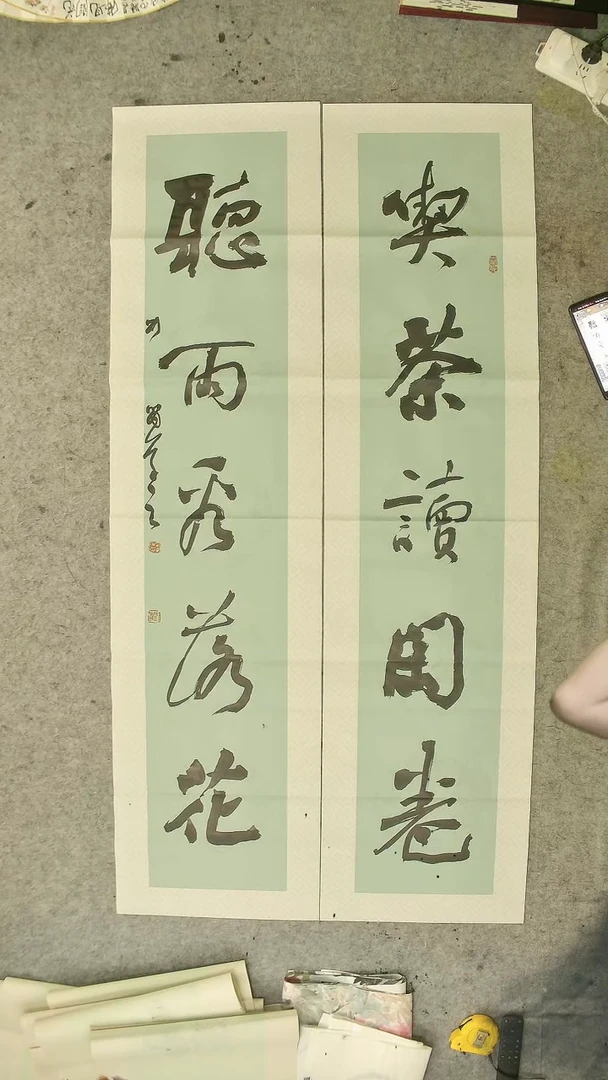 喫茶讀閑卷
聽雨看落花